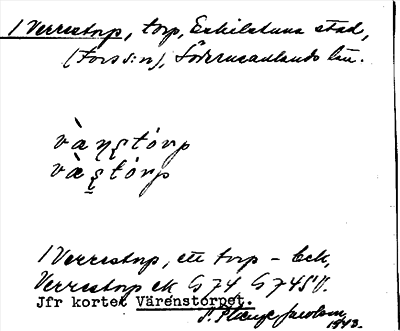 1 Verrestorp, torp, Eskilstuna stad,
(Fors s:n), Södermanlands län.
vàŋstórp
vàstórp
1 Verrestorp, ett torp – Eek,
Verrestorp ek G 74 G 745 V.
Jfr kortet Värenstorpet.
1943.